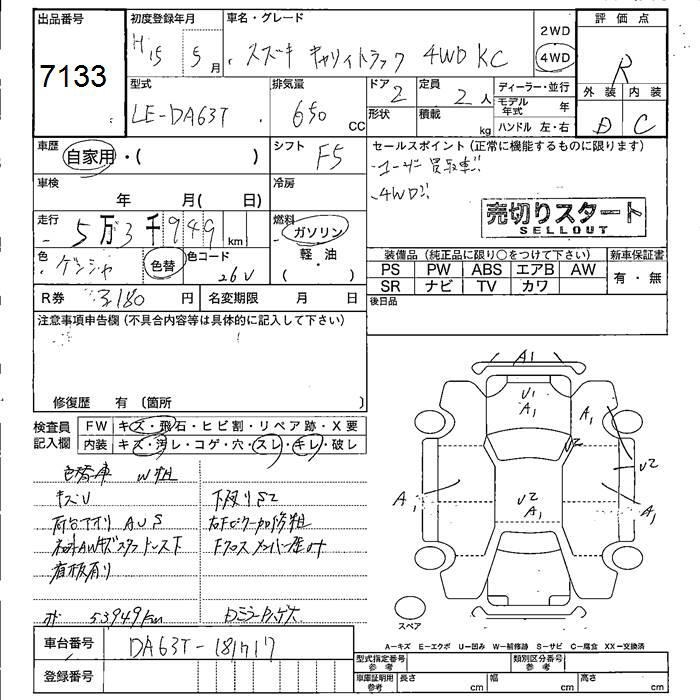 出品番号
7133
初度登録年月
H15 5月
車名・グレード
スズキ キャリイトラック 4WD KC
2WD
4WD
評価点
R
外装 内装
D C
型式
LE-DA63T
排気量
650 CC
ドア 2
形状
定員 2人
積載 kg
ディーラー・並行
モデル年式 年
ハンドル 左・右
車歴
自家用・( )
シフト F5
セールスポイント (正常に機能するものに限ります)
ユーザー買取車!!
4WD!!
売切りスタート
SELLOUT
車検
年 月( 日)
冷房
走行
5万3千949km
燃料
ガソリン
軽・油
( )
色
色替
色コード
26V
装備品 (純正品に限り○をつけて下さい)
新車保証書
PS PW ABS エアB AW
SR ナビ TV カワ
有・無
R券 円
名変期限 月 日
後日品
注意事項申告欄 (不具合内容等は具体的に記入して下さい)
修復歴 有 (箇所 )
検査員記入欄
FW キズ・飛石・ヒビ割・リペア跡・X要
内装 キズ・汚レ・コゲ・穴・スレ・キレ・破レ
色替車 W粗
キズU
下廻りS2
荷台アオリ AUS
看板有り
53949km
A1
U1
A1
A1
U2
U2
A1
U2
A1
A1
スペア
A−キズ E−エクボ U−凹み W−補修跡 S−サビ C−腐食 XX−交換済
車台番号
DA63T-181717
登録番号
型式指定番号 参考
類別区分番号 参考
車庫証明用 参考
長さ cm
幅 cm
高さ cm